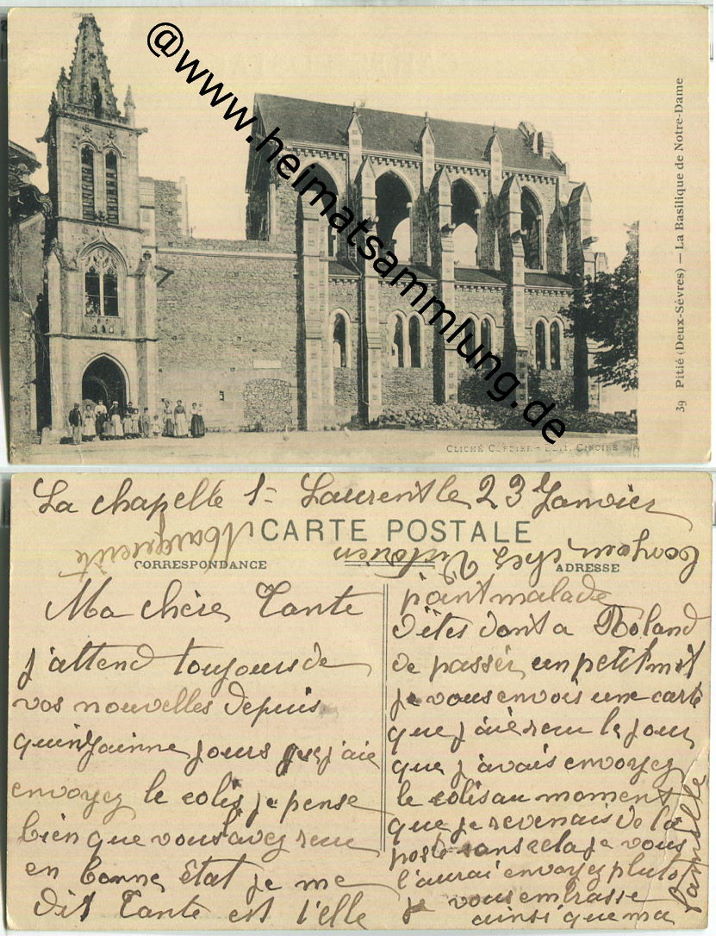 @www.heimatsammlung.de
39 Pitié (Deux-Sèvres) — La Basilique de Notre-Dame
CLICHÉ CORDIER - EDIT.
La chapelle St Laurent le 23 Janvier
CARTE POSTALE
CORRESPONDANCE
ADRESSE
Marguerite
bonjour chez
Ma chère Tante
j'attend toujours de
vos nouvelles depuis
quinzainne jours que j'aie
envoyez le colis je pense
bien que vous l'avez reçu
en bonne état je me
dit Tante est t'elle
point malade
dites dont a Roland
de passer un petit mot
je vous envois une carte
que j'aie reçu le jour
que j'avais envoyez
le colis au moment
que je revenais de la
poste sans cela je vous
l'aurai envoyez plutot
Je vous embrasse
ainsi que ma
famille